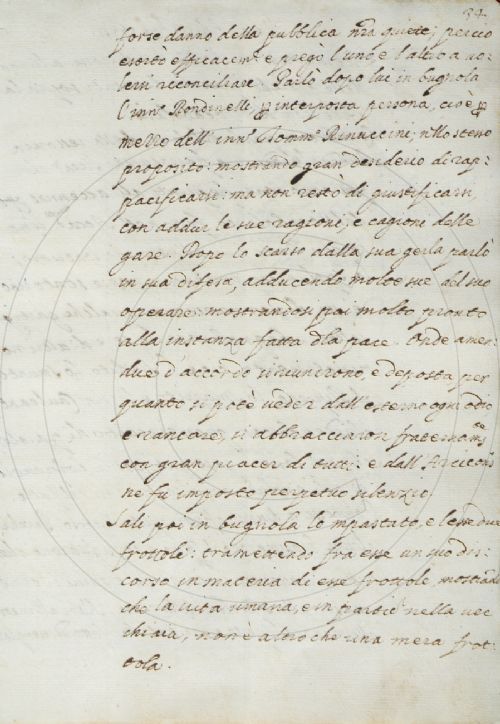 34.
forse danno della pubblica nra quiete; perciò
esortò efficacemte e pregò l'uno, e l'altro a vo-
lersi riconciliare. Parlò dopo lui in bugnola
l'innto Bordinelli, p interposta persona, cioè p
mezzo dell'innto Tommo Rinuccini, nllo stesso
proposito: mostrando gran desiderio di rap-
pacificarsi: ma non restò di giustificarsi,
con addur le sue ragioni, e cagioni delle
gare. Dopo lo scarso dalla sua gerla parlò
in sua difesa, adducendo molte sue del suo
operare: mostrandosi poi molto pronto
alla instanza fatta dlla pace. Onde amen-
due d'accordo si riunirono, e deposta per
quanto si potè veder dall'esterno ogni odio
e rancore, si abbracciaron fraternamte
con gran piacer di tutti: e dall'Arcicons
ne fu imposto perpetuo silenzio.
Salì poi in bugnola lo'mpastato, e lesse due
frottole: tramettendo fra esse un suo dis-
corso in materia di esse frottole, mostrando
che la vita umana, e in partic nella vec-
chiaia, non è altro che una mera frot-
tola.